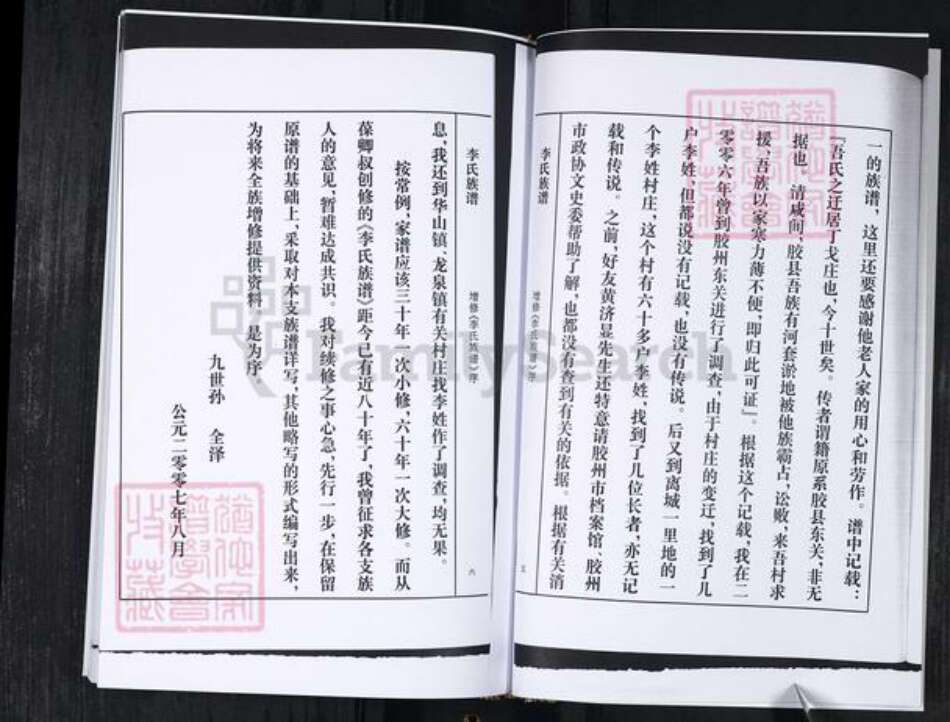 一的族谱，这里还要感谢他老人家的用心和劳作。谱中记载：
『吾氏之迁居丁戈庄也，今十世矣。传者谓籍原系胶县东关，非无
据也。清咸间，胶县吾族有河套淤地被他族霸占，讼败，来吾村求
援，吾族以家寒力薄不便，即归此可证』。根据这个记载，我在二
零零六年曾到胶州东关进行了调查，由于村庄的变迁，找到了几
户李姓，但都说没有记载，也没有传说。后又到离城一里地的一
个李姓村庄，这个村有六十多户李姓，找到了几位长者，亦无记
载和传说。之前，好友黄济显先生还特意请胶州市档案馆、胶州
市政协文史委帮助了解，也都没有查到有关的依据。根据有关消
李氏族谱
增修《李氏族谱》序
五
李氏族谱
增修《李氏族谱》序
六
息，我还到华山镇、龙泉镇有关村庄找李姓作了调查，均无果。
按常例，家谱应该三十年一次小修，六十年一次大修。而从
葆卿叔创修的《李氏族谱》距今已有近八十年了，我曾征求各支族
人的意见，暂难达成共识。我对续修之事心急，先行一步，在保留
原谱的基础上，采取对本支族谱详写，其他略写的形式编写出来，
为将来全族增修提供资料。是为序。
九世孙 全泽
公元二零零七年八月
FamilySearch